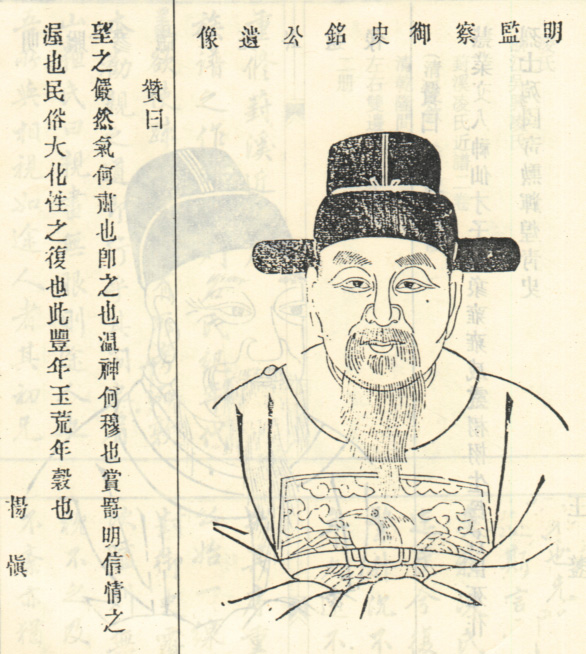 明監察御史銘公遺像
贊曰
望之儼然氣何肅也卽之也溫神何穆也賞爵明信情之
渥也民俗大化性之復也此豐年玉荒年穀也
楊慎